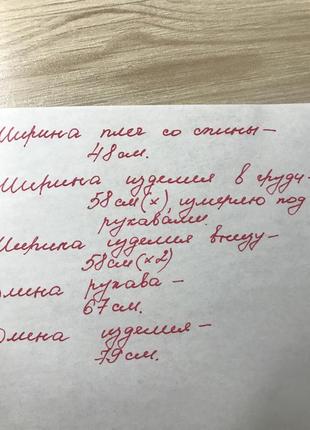 Ширина плеч со спины –
48 см.
Ширина изделия в груди-
58 см (х), измерлю под
рукавами.
Ширина изделия внизу-
58 см (х2)
Длина рукава –
67 см.
Длина изделия –
79 см.